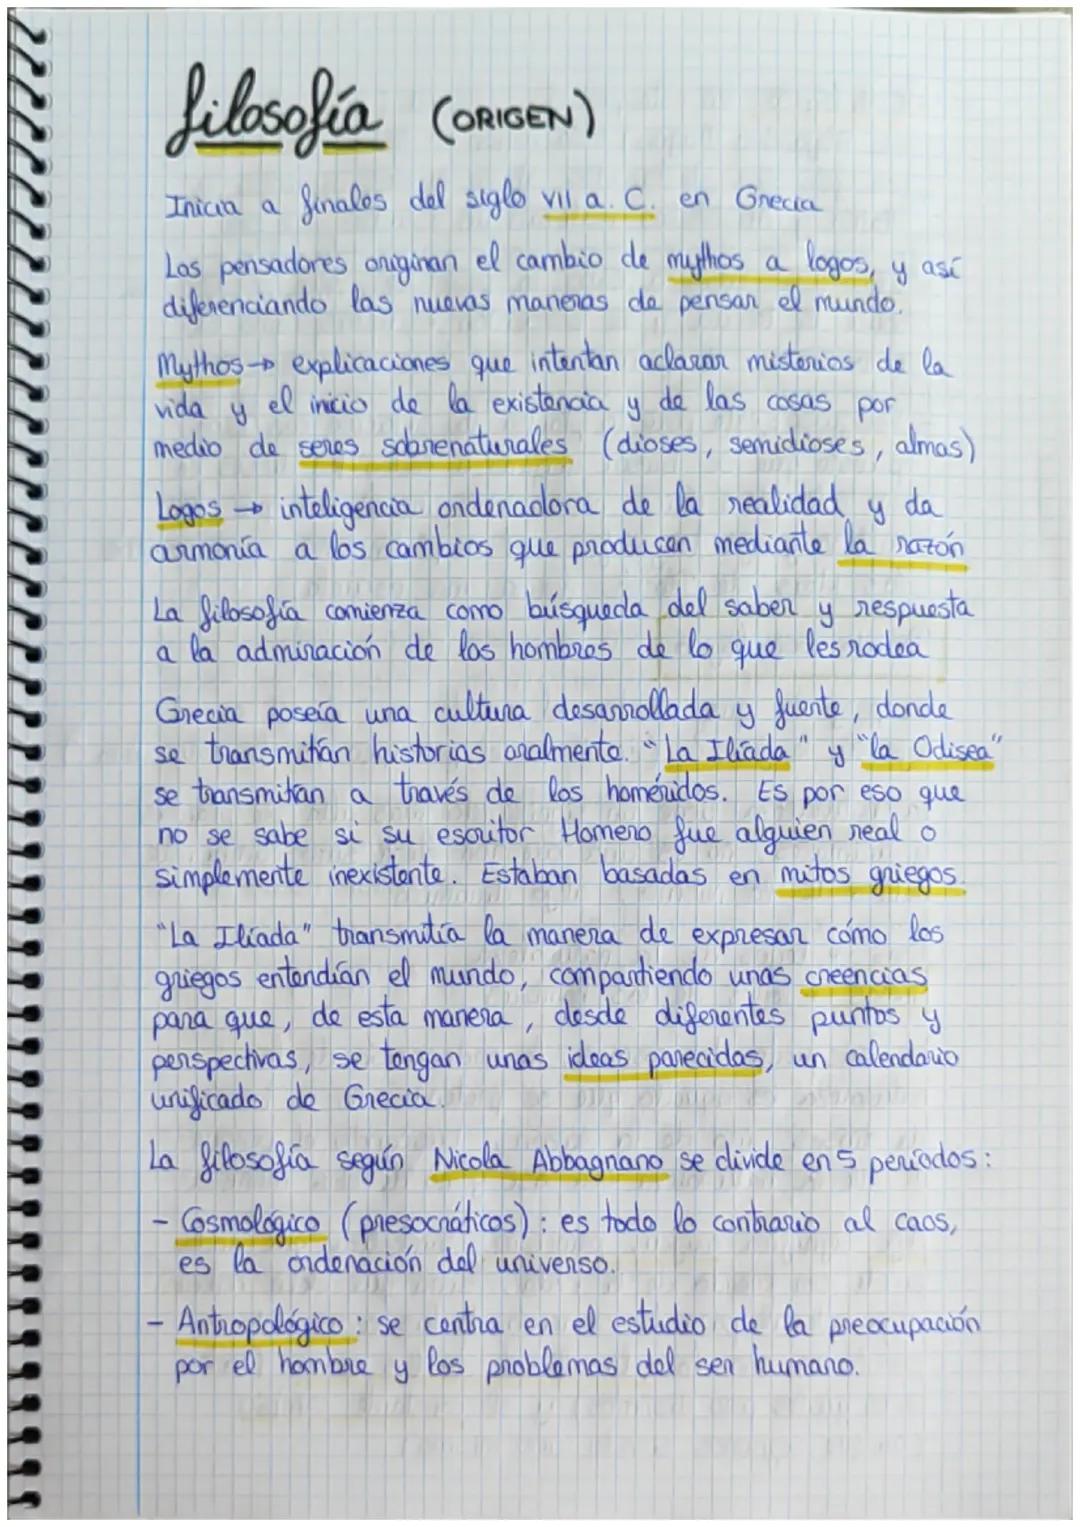 filosofía (ORIGEN)
Inicia a finales del siglo VII a. C. en Grecia
Los pensadores originan el cambio de mythos a logos, y así
diferenciando las nuevas maneras de pensar el mundo.
Mythos → explicaciones que intentan aclarar misterios de la
vida y el inicio de la existencia y de las cosas por
medio de seres sobrenaturales (dioses, semidioses, almas)
Logos → inteligencia ordenadora de la realidad y da
armonía a los cambios que producen mediante la razón
La filosofía comienza como búsqueda del saber y respuesta
a la admiración de los hombres de lo que les rodea
Grecia poseía una cultura desarrollada y fuerte, donde
se transmitían historias oralmente. "La Ilíada" y "la Odisea"
se transmitían a través de los homéridos. Es por eso que
no se sabe si su escritor Homero fue alguien real o
simplemente inexistente. Estaban basadas en mitos griegos.
"La Ilíada" transmitía la manera de expresar cómo los
griegos entendían el mundo, compartiendo unas creencias
para que, de esta manera, desde diferentes puntos y
perspectivas, se tengan unas ideas parecidas, un calendario
unificado de Grecia.
La filosofía según Nicola Abbagnano se divide en 5 períodos:
- Cosmológico (presocráticos): es todo lo contrario al caos,
es la ordenación del universo.
- Antropológico: se centra en el estudio de la preocupación
por el hombre y los problemas del ser humano.